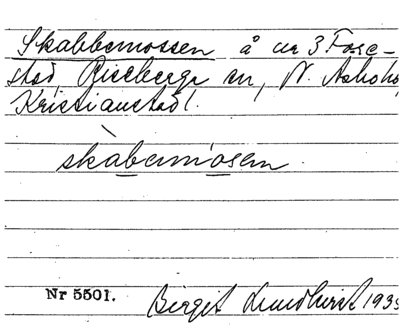 Skabbemossen å nr 3 Fare-
stad, Riseberga sn, N. Åsbo hd,
Kristianstad l.
skabemosen
Nr 5501.
Birgit Lundkvist 1935